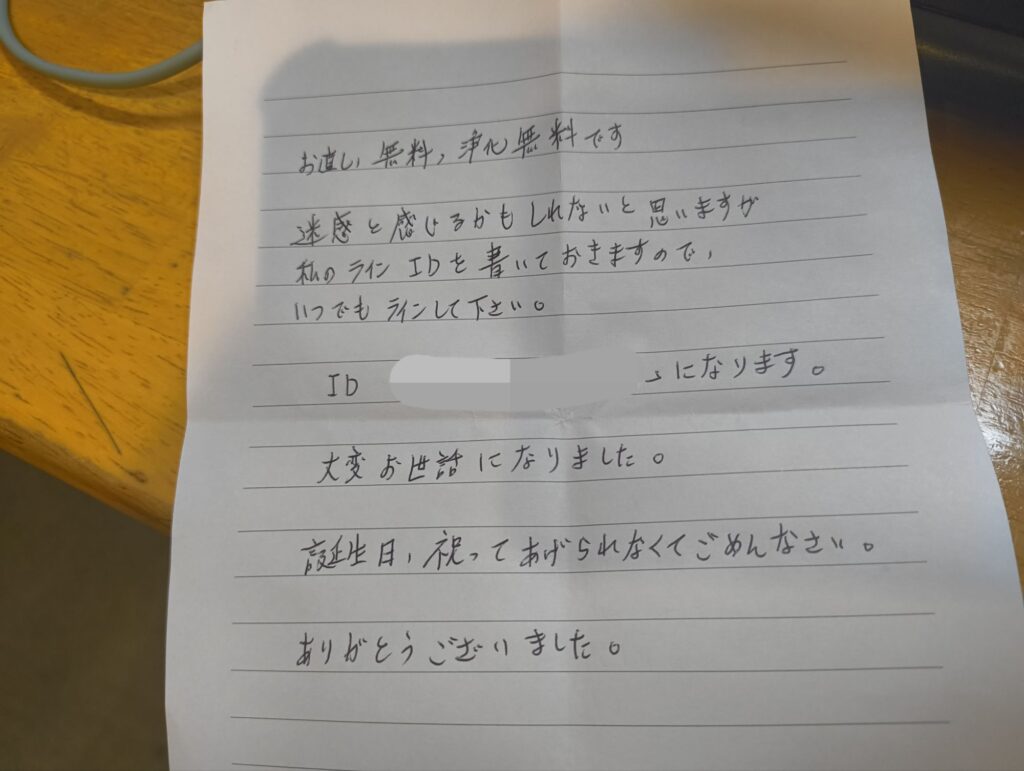 お直し無料、浄化無料です
迷惑と感じるかもしれないと思いますが
私のラインIDを書いておきますので、
いつでもラインして下さい。
ID になります。
大変お世話になりました。
誕生日、祝ってあげられなくてごめんなさい。
ありがとうございました。